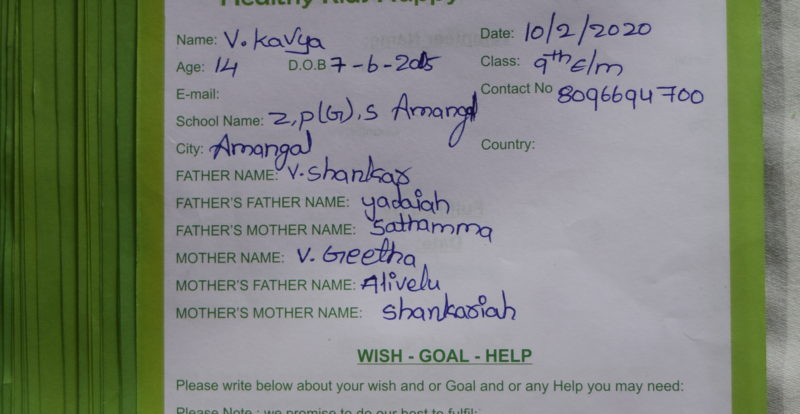 Healthy Kids Happy
Name: V. Kavya Date: 10/2/2020
Age: 14 D.O.B 7-6-2005 Class: 9th E/m
E-mail: Contact No 8096694700
School Name: Z,P(G),S Amangal
City: Amangal Country:
FATHER NAME: V. Shankar
FATHER'S FATHER NAME: yadaiah
FATHER'S MOTHER NAME: Sathamma
MOTHER NAME: V. Geetha
MOTHER'S FATHER NAME: Alivelu
MOTHER'S MOTHER NAME: Shankariah
WISH - GOAL - HELP
Please write below about your wish and or Goal and or any Help you may need:
Please Note : we promise to do our best to fulfil: